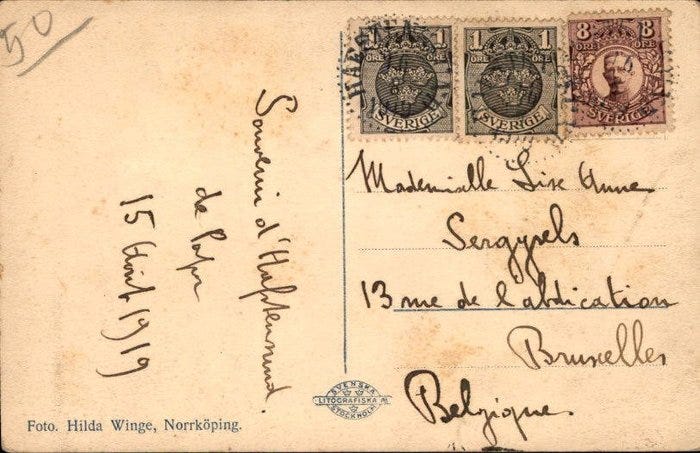 50
1 1 8
ÖRE ÖRE ÖRE ÖRE ÖRE ÖRE
SVERIGE SVERIGE SVERIGE
Souvenir d'Hafstensund.
de Papa
15 Août 1919
Mademoiselle Lise Anne
Sergysels
13 rue de l'abdication
Bruxelles
Belgique
SVENSKA
LITOGRAFISKA AB
STOCKHOLM
Foto. Hilda Winge, Norrköping.